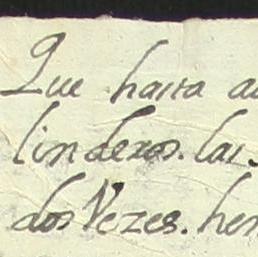 Que haita a
linderos. lai.
dos Vezes. hen